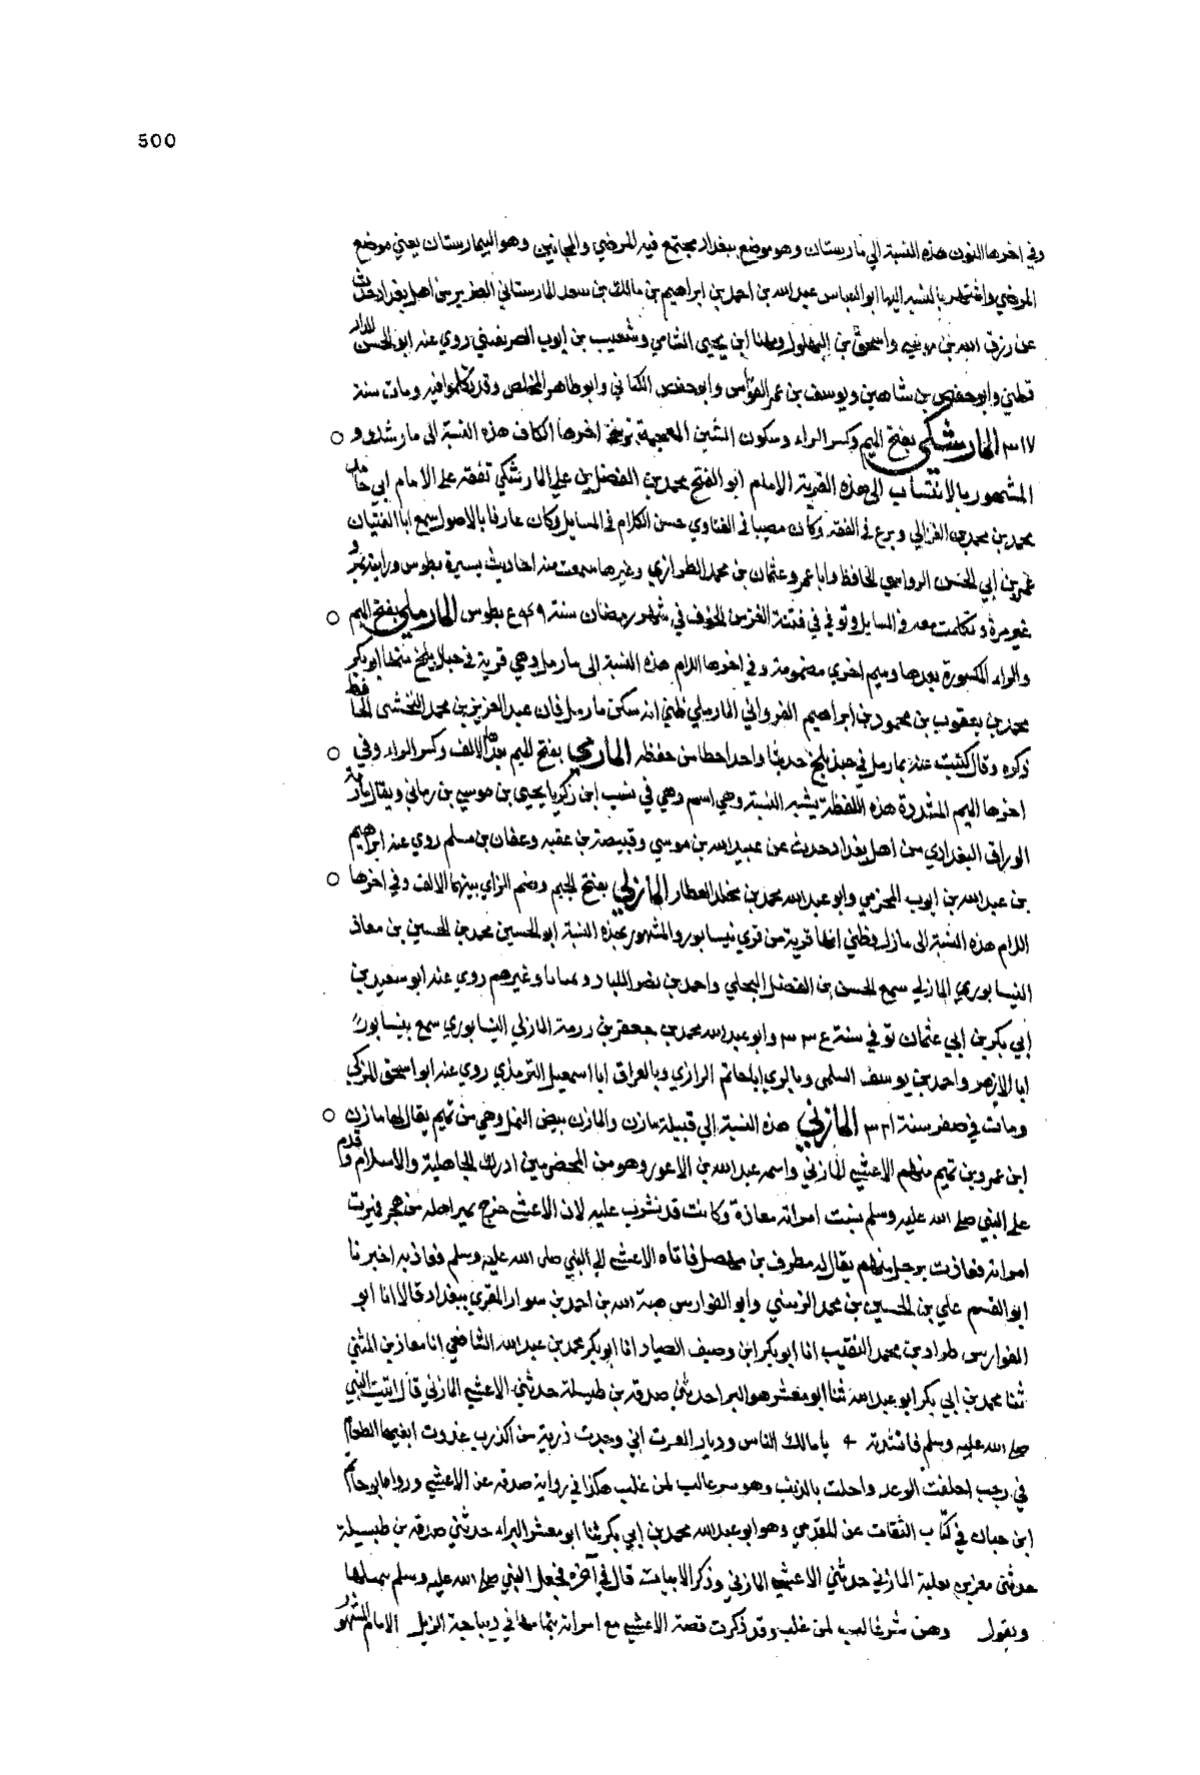 500
وفي اخرها النون هذه النسبة الي مارستان وهو موضع ببغداد يجتمع فيه المرضي والمجانين وهو البيمارستان يعني موضع
المرضي واشتهر بالنسبة اليها ابو العباس عبد الله بن احمد بن ابراهيم بن مالك بن سعد المارستاني الضرير من اهل بغداد حدث
عن رزق الله بن موسي واسحق بن البهلول ومهنا ابن يحيي الشامي وشعيب بن ايوب الصريفيني روي عنه ابو الحسن الدار
قطني وابو حفص بن شاهين ويوسف بن عمر القواس وابو حفص الكتاني وابو طاهر المخلص وقد تكلموا فيه ومات سنة
٣١٧ المارشكي بفتح الميم وكسر الراء وسكون الشين المعجمة وفي اخرها الكاف هذه النسبة الى مارشك و
المشهور بالانتساب الى هذه القرية الامام ابو الفتح محمد بن الفضل بن علي المارشكي تفقه على الامام ابي حامد
محمد بن محمد بن الغزالي وبرع في الفقه وكان مصيبا في الفتاوي حسن الكلام في المسايل وكان عارفا بالاصول سمع ابا الفتيان
عمر بن ابي الحسن الرواسي الحافظ وابا عمرو عثمان بن محمد الطرازي وغيرهما سمعت منه احاديث يسيرة بطوس ورايته بمرو
غير مرة وتكلمت معه في المسايل وتوفي في فتنة الغز من الخوف في شهر رمضان سنة ٥٤٩ بطوس المارملي بفتح الميم
والراء المكسورة بعدها وميم اخري مضمومة وفي اخرها اللام هذه النسبة الى مارمل وهي قرية في جبال بلخ منها ابو بكر
محمد بن يعقوب بن محمود بن ابراهيم الغزواني المارملي ظني انه سكن مارمل فان عبد العزيز بن محمد النخشبى الحافظ
ذكره وقال كتبت عنه بمارمل في جبل بلخ حديثا واحدا خطا من حفظه المارمي بفتح الميم بعدها الالف وكسر الراء وفي
اخرها الميم المشددة هذه اللفظة يشبه النسبة وهي اسم وهي في نسب ابن زكريا يحيى بن موسى بن رماني ويقال مارمة
الوراق البغدادي من اهل بغداد حدث عن عبيد الله بن موسي وقبيصة بن عقبه وعفان بن مسلم روي عنه ابراهيم
بن عبد الله بن ايوب المخرمي وابو عبد الله محمد بن مخلد العطار المازلي بفتح الميم وضم الزاي بينهما الالف وفي اخرها
اللام هذه النسبة الى مازل وظني انها قرية من قري نيسابور والمشهور بهذه النسبة ابو الحسين محمد بن الحسين بن معاذ
النيسابوري المازلي سمع الحسن بن الفضل البجلي واحمد بن نضر اللباد وتماما وغيرهم روي عنه ابو سعيد بن
ابي بكر بن ابي عثمان توفي في سنة ٣٣٤ وابو عبد الله محمد بن جعفر بن رزمة المازلي النيسابوري سمع بنيسابور
ابا الازهر واحمد بن يوسف السلمى وبالري ابا حاتم الرازي وبالعراق ابا اسمعيل الترمذي روي عنه ابو اسحق المزكي
ومات في صفر سنة ٣٣١ المازني هذه النسبة الي قبيلة مازن والمازن بيض النمل وهي من تميم يقال لها مازن
ابن عمرو بن تميم منهم الاعشى المازني واسمه عبد الله بن الاعور وهو من المخضرمين ادرك الجاهلية والاسلام وقدم
على النبي صلى الله عليه وسلم بسبب امراته معاذة وكانت قد نشزت عليه لان الاعشى خرج يمير اهله من هجر فهربت
امراته فعاذت برجل منهم يقال له مطرف بن بهصل فاتاه الاعشى الى النبي صلى الله عليه وسلم فعاذ به اخبرنا
ابو القسم علي بن الحسين بن محمد الزينبي وابو الفوارس هبة الله بن احمد بن سوار المقري ببغداد قالا انا ابو
الفوارس طراد بن محمد النقيب انا ابو بكر ابن وصيف الصياد انا ابو بكر محمد بن عبد الله الشافعي انا معاذ بن المثني
ثنا محمد بن ابي بكر ابو عبد الله ثنا ابو معشر هو البرا حدثني صدقه بن طيسلة حدثني الاعشى المازني قال اتيت النبي
صلى الله عليه وسلم فانشدته يا مالك الناس وديان العرب اني وجدت ذربة من الذرب غدوت ابغيها الطعام
في رجب اخلفت الوعد واحلت بالذنب وهو شر غالب لمن غلب هكذا في رواية صدقه عن الاعشى ورواه ابو حاتم
ابن حبان في كتاب الثقات عن المقدمي وهو ابو عبد الله محمد بن ابي بكر ثنا ابو معشر البراء حدثني صدقه بن طيسلة
حدثني معن بن ثعلبة المازني حدثني الاعشى المازني وذكر الابيات قال في آخره فجعل النبي صلى الله عليه وسلم يتمثلها
ويقول وهن شر غالب لمن غلب وقد ذكرت قصة الاعشى مع امراته بتمامها في ديباجة الذيل الامام المشهور